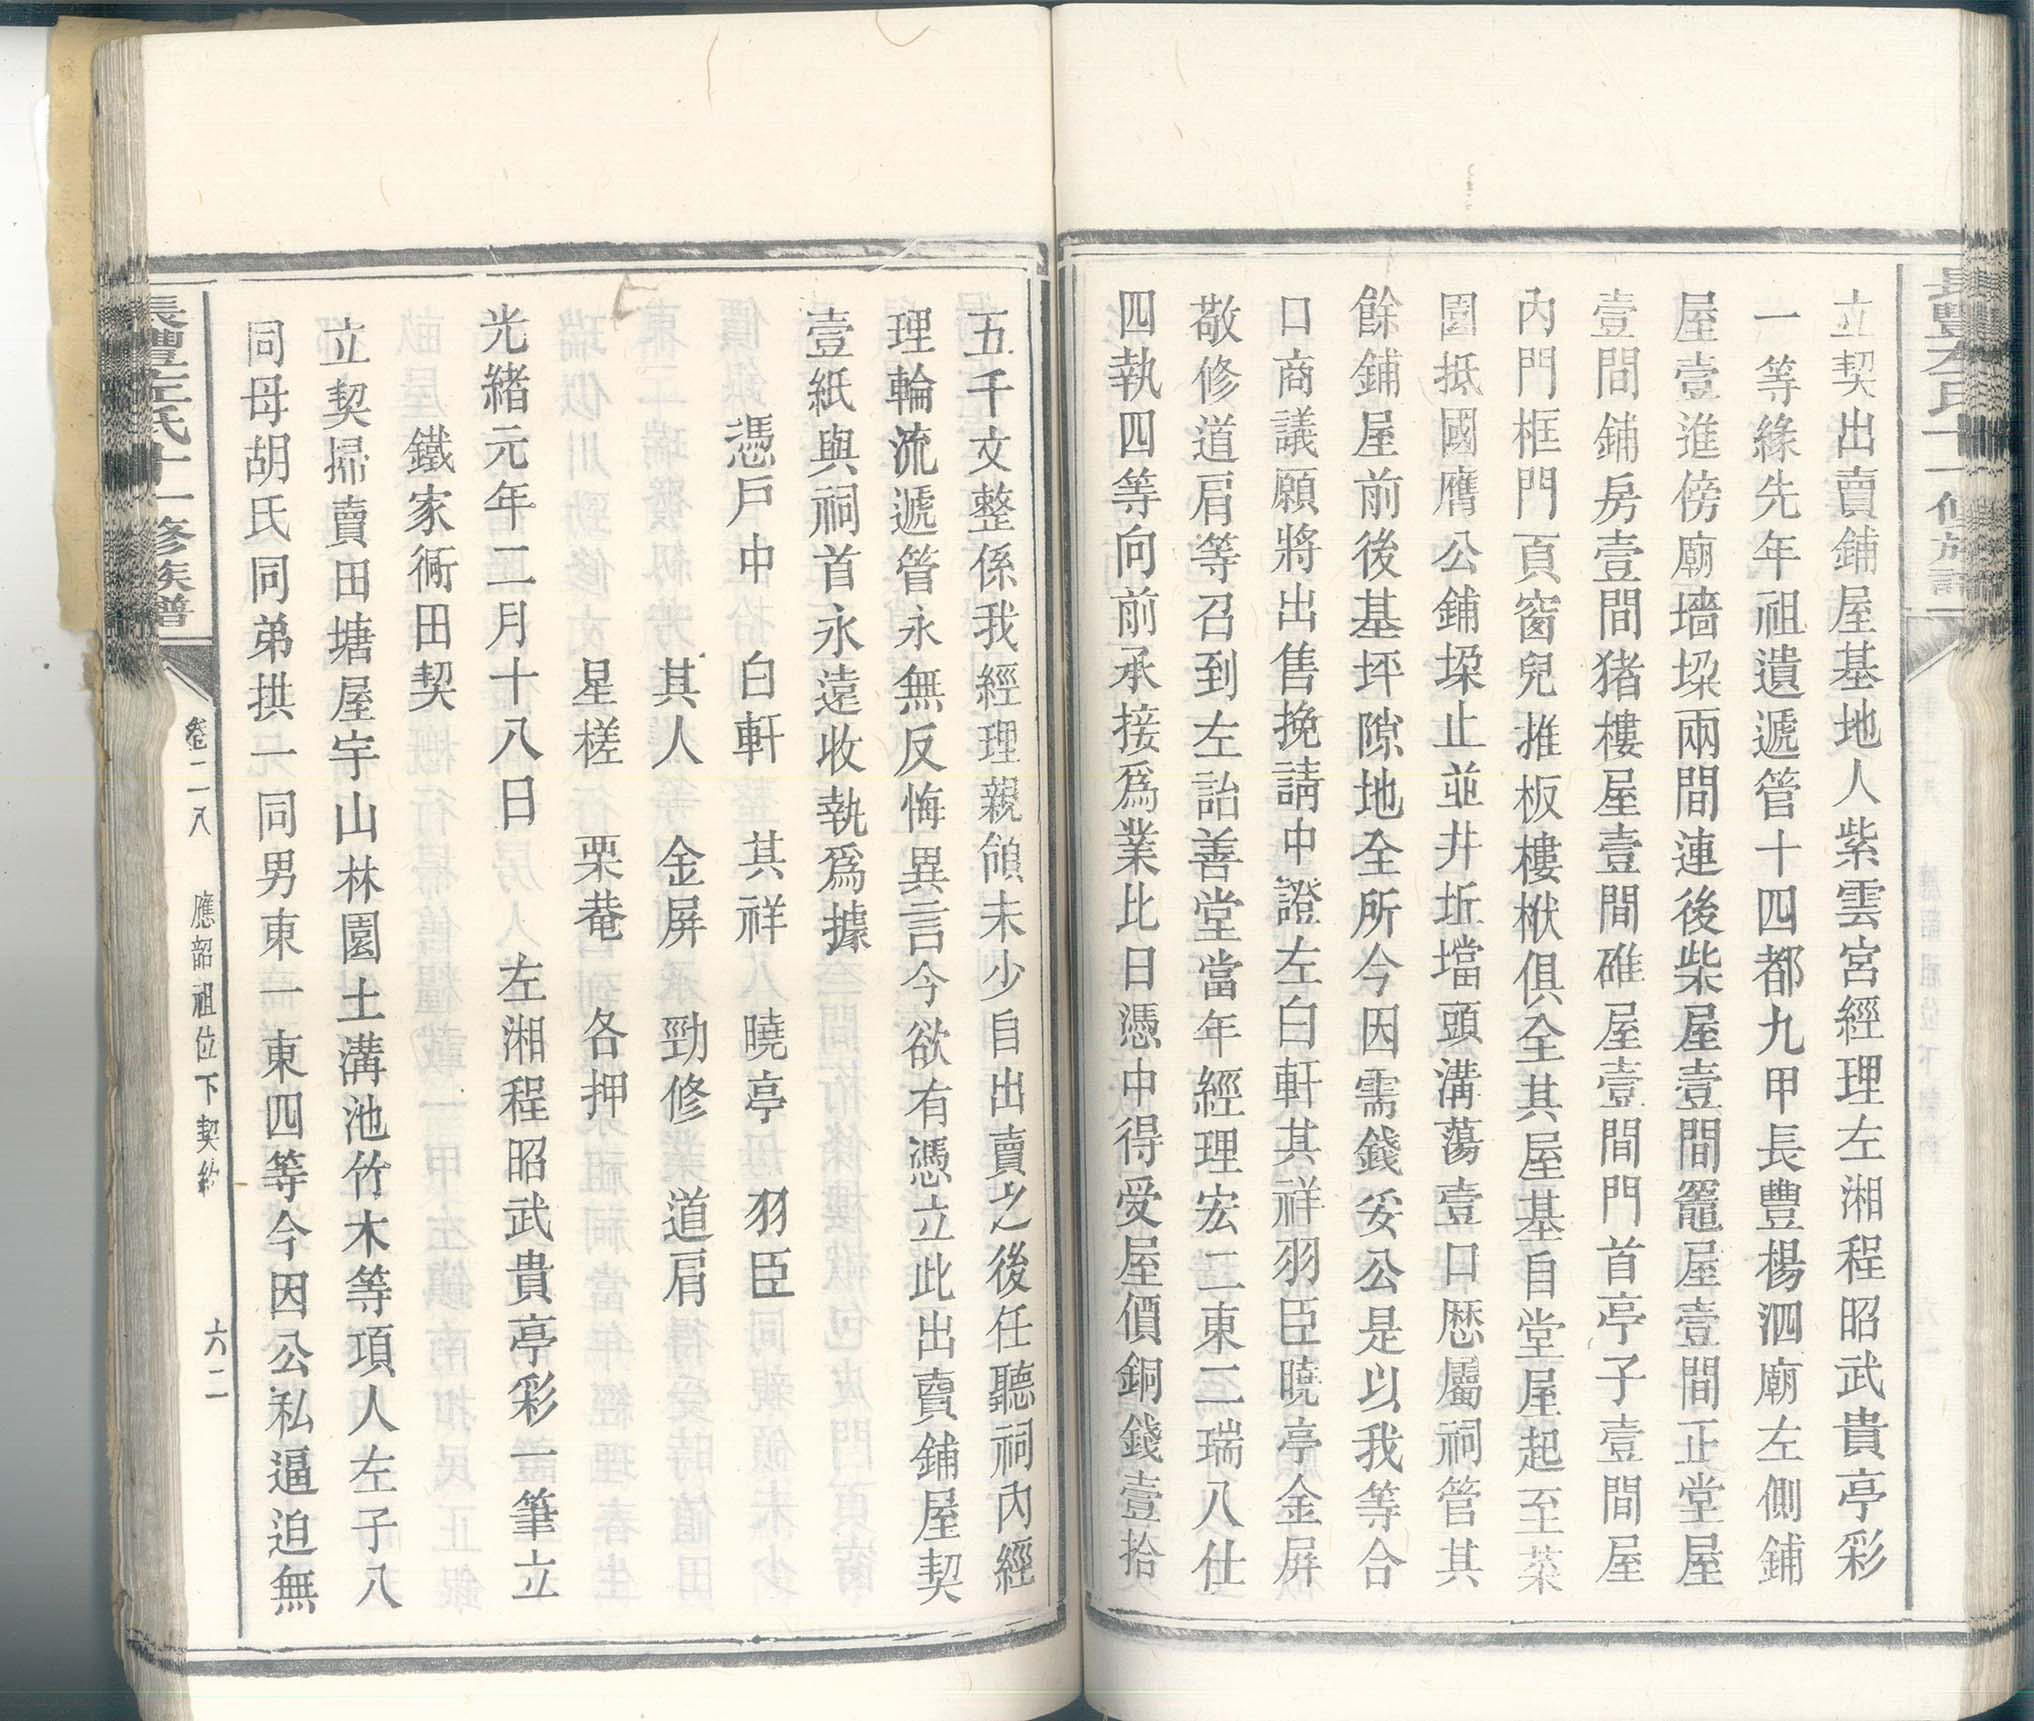 立契出賣鋪屋基地人紫雲宮經理左湘程昭武貴亭彩
一等緣先年祖遺遞管十四都九甲長豐楊泗廟左側鋪
屋壹進傍廟墻垜兩間連後柴屋壹間竈屋壹間正堂屋
壹間鋪房壹間猪樓屋壹間碓屋壹間門首亭子壹間屋
內門框門頁窗兒推板樓楸俱全其屋基自堂屋起至菜
園抵國鷹公鋪垜止並井坵壋頭溝蕩壹口歷屬祠管其
餘鋪屋前後基坪隙地全所今因需錢妥公是以我等合
口商議願將出售挽請中證左白軒其祥羽臣曉亭金屏
敬修道肩等召到左詒善堂當年經理宏二東二瑞八仕
四執四等向前承接爲業比日憑中得受屋價銅錢壹拾
五千文整係我經理親領未少自出賣之後任聽祠內經
理輪流遞管永無反悔異言今欲有憑立此出賣鋪屋契
壹紙與祠首永遠收執爲據
憑戶中 白軒 其祥 曉亭 羽臣
其人 金屏 勁修 道肩
星槎 栗菴 各押
光緒元年二月十八日 左湘程昭武貴亭彩一筆立
鐵家衕田契
立契掃賣田塘屋宇山林園土溝池竹木等項人左子八
同母胡氏同弟拱一同男東一東四等今因公私逼迫無
長豐左氏十一修族譜
卷二八 應韶祖位下契約 六二